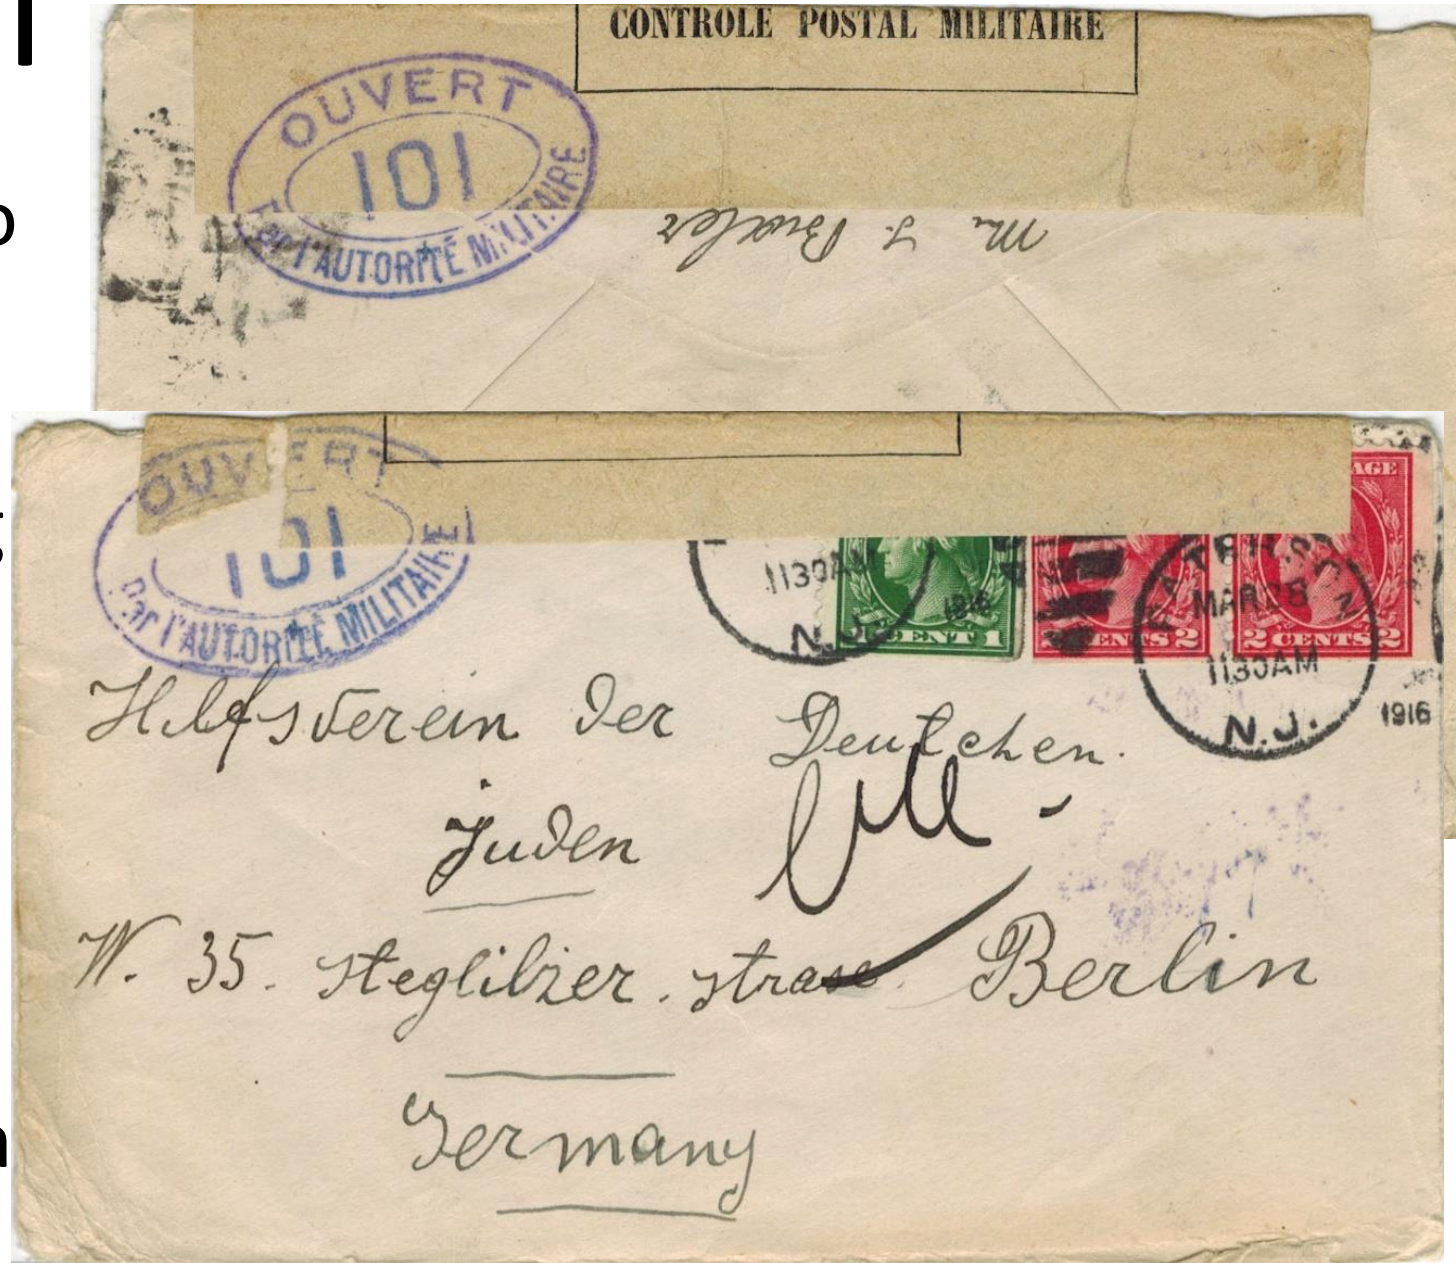 CONTROLE POSTAL MILITAIRE
OUVERT
101
Par l'AUTORITÉ MILITAIRE
M. J.
OUVERT
101
Par l'AUTORITÉ MILITAIRE
AGE
1130AM
1916
N.J.
CENT 1
CENTS 2
2 CENTS 2
PATERSON
MAR 28
1130AM
N.J.
1916
Hilfsverein der Deutchen.
Juden
W. 35. steglitzer. strase. Berlin
Germany